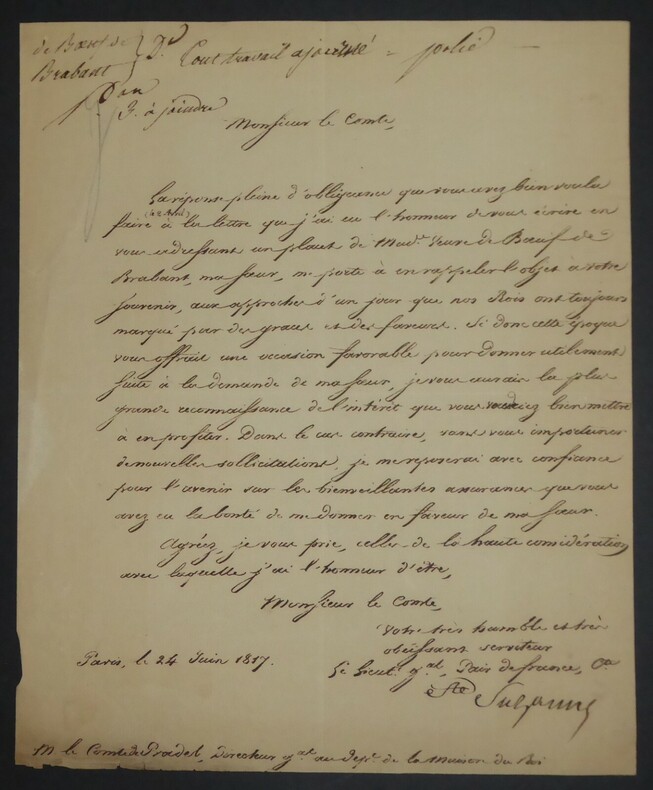 de Bœuf de
Brabant
Dr Tout travail ajourné = poli
3. à joindre
Monsieur le Comte,
La réponse pleine d'obligeance que vous avez bien voulu
(le 2 Avril)
faire à la lettre que j'ai eu l'honneur de vous écrire en
vous adressant un placet de Made. Veuve de Bœuf de
Brabant, ma sœur, me porte à en rappeler l'objet à votre
souvenir, aux approches d'un jour que nos Rois ont toujours
marqué par des graces et des faveurs. Si donc cette époque
vous offrait une occasion favorable pour donner utilement
suite à la demande de ma sœur, je vous aurais la plus
grande reconnaissance de l'intérêt que vous voudriez bien mettre
à en profiter. Dans le cas contraire, sans vous importuner
de nouvelles sollicitations, je me reposerai avec confiance
pour l'avenir sur les bienveillantes assurances que vous
avez eu la bonté de me donner en faveur de ma sœur.
Agréez, je vous prie, celles de la haute considération
avec laquelle j'ai l'honneur d'être,
Monsieur le Comte,
Votre très humble et très
obéissant serviteur
Le Lieut. gal, Pair de france, Cte
de Ste Suzanne
Paris, le 24 Juin 1817.
M le Comte de Pradel, Directeur gal au Dept. de la Maison du Roi